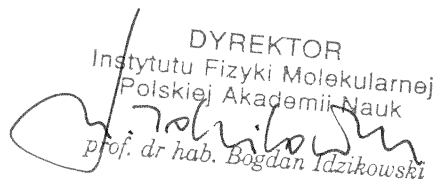 DYREKTOR
Instytutu Fizyki Molekularnej
Polskiej Akademii Nauk
prof. dr hab. Bogdan Idzikowski